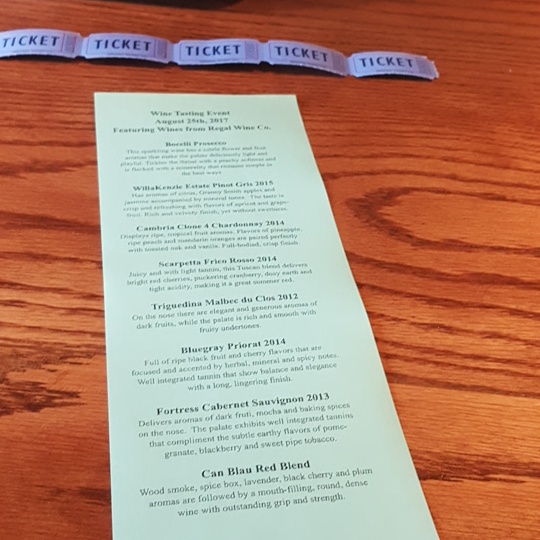 TICKET TICKET TICKET TICKET TICKET
Wine Tasting Event
August 25th, 2017
Featuring Wines from Regal Wine Co.
Bocelli Prosecco
This sparkling wine has a subtle flower and fruit
aromas that make the palate deliciously light and
playful. Tickles the throat with a peachy softness and
is flecked with a minerality that remains supple in
the best ways
WillaKenzie Estate Pinot Gris 2015
Has aromas of citrus, Granny Smith apples and
jasmine accompanied by mineral tones. The taste is
crisp and refreshing with flavors of apricot and grape-
fruit. Rich and velvety finish, yet without sweetness.
Cambria Clone 4 Chardonnay 2014
Displays ripe, tropical fruit aromas. Flavors of pineapple,
ripe peach and mandarin oranges are paired perfectly
with toasted oak and vanila. Full-bodied, crisp finish.
Scarpetta Frico Rosso 2014
Juicy and with light tannin, this Tuscan blend delivers
bright red cherries, puckering cranberry, dusy earth and
tight acidity, making it a great summer red.
Triguedina Malbec du Clos 2012
On the nose there are elegant and generous aromas of
dark fruits, while the palate is rich and smooth with
fruity undertones.
Bluegray Priorat 2014
Full of ripe black fruit and cherry flavors that are
focused and accented by herbal, mineral and spicy notes.
Well integrated tannin that show balance and elegance
with a long, lingering finish.
Fortress Cabernet Sauvignon 2013
Delivers aromas of dark fruti, mocha and baking spices
on the nose. The palate exhibits well integrated tannins
that compliment the subtle earthy flavors of pome-
granate, blackberry and sweet pipe tobacco.
Can Blau Red Blend
Wood smoke, spice box, lavender, black cherry and plum
aromas are followed by a mouth-filling, round, dense
wine with outstanding grip and strength.